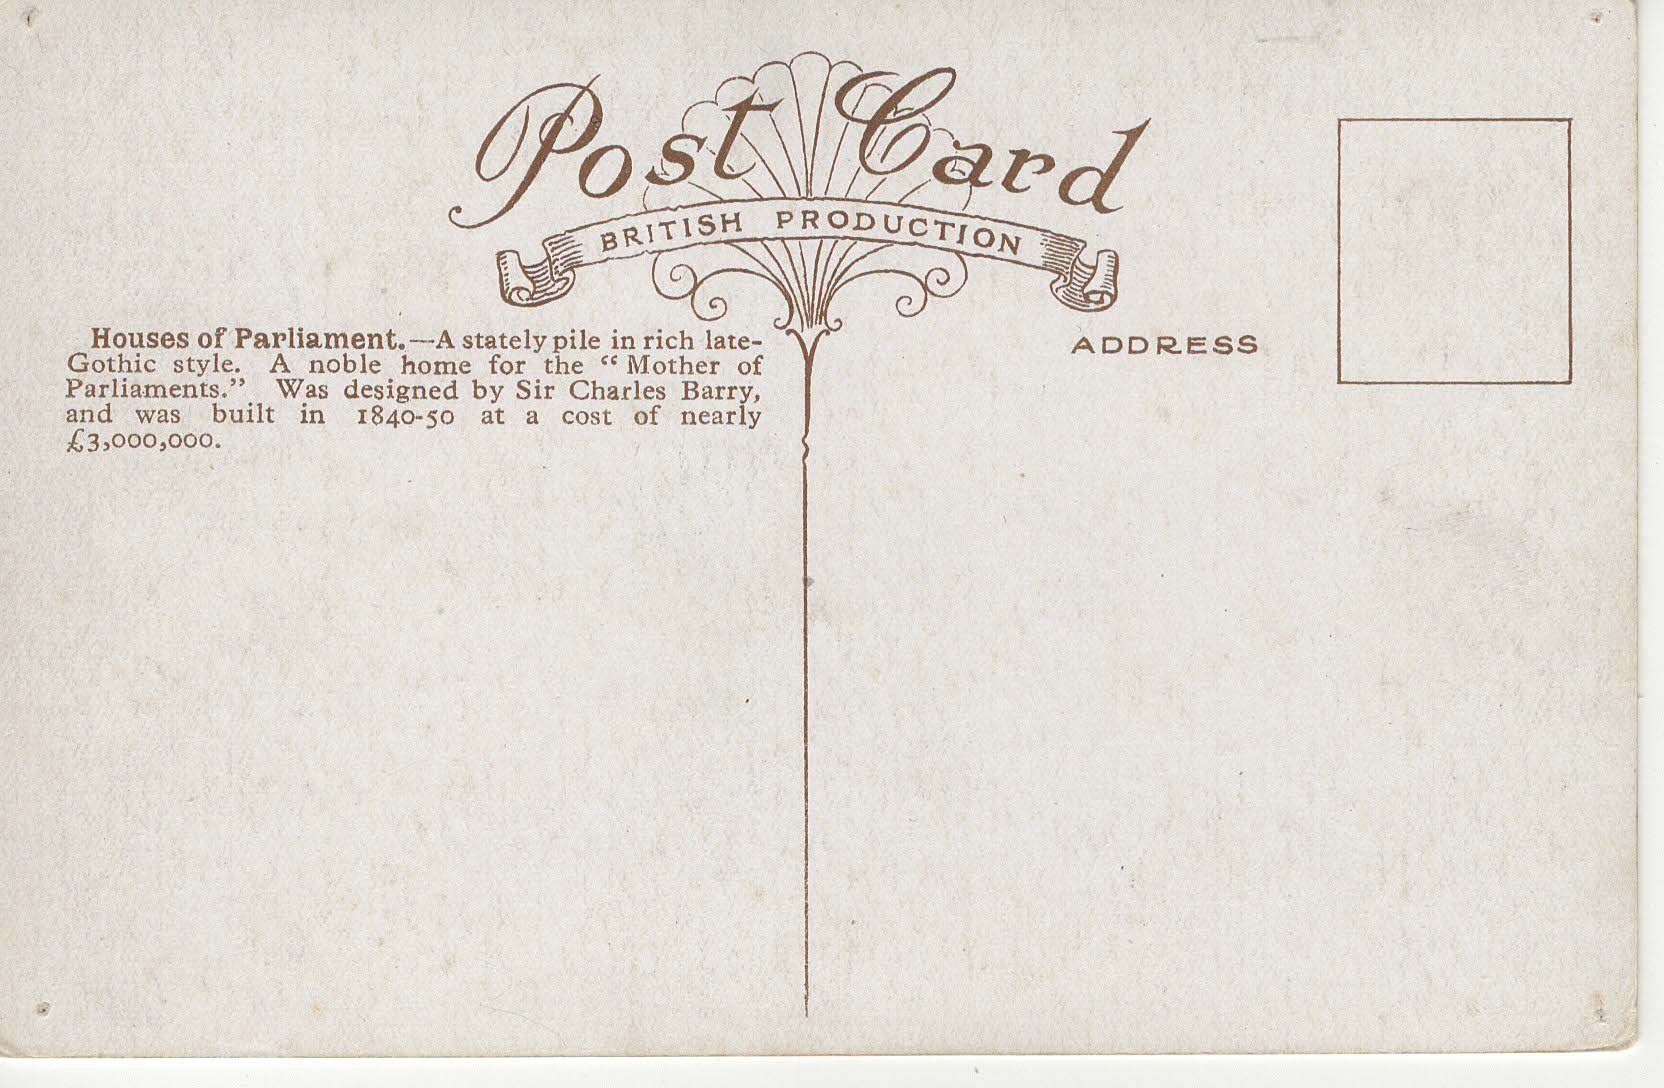 Post Card
BRITISH PRODUCTION
Houses of Parliament.—A stately pile in rich late-
Gothic style. A noble home for the “Mother of
Parliaments.” Was designed by Sir Charles Barry,
and was built in 1840-50 at a cost of nearly
£3,000,000.
ADDRESS